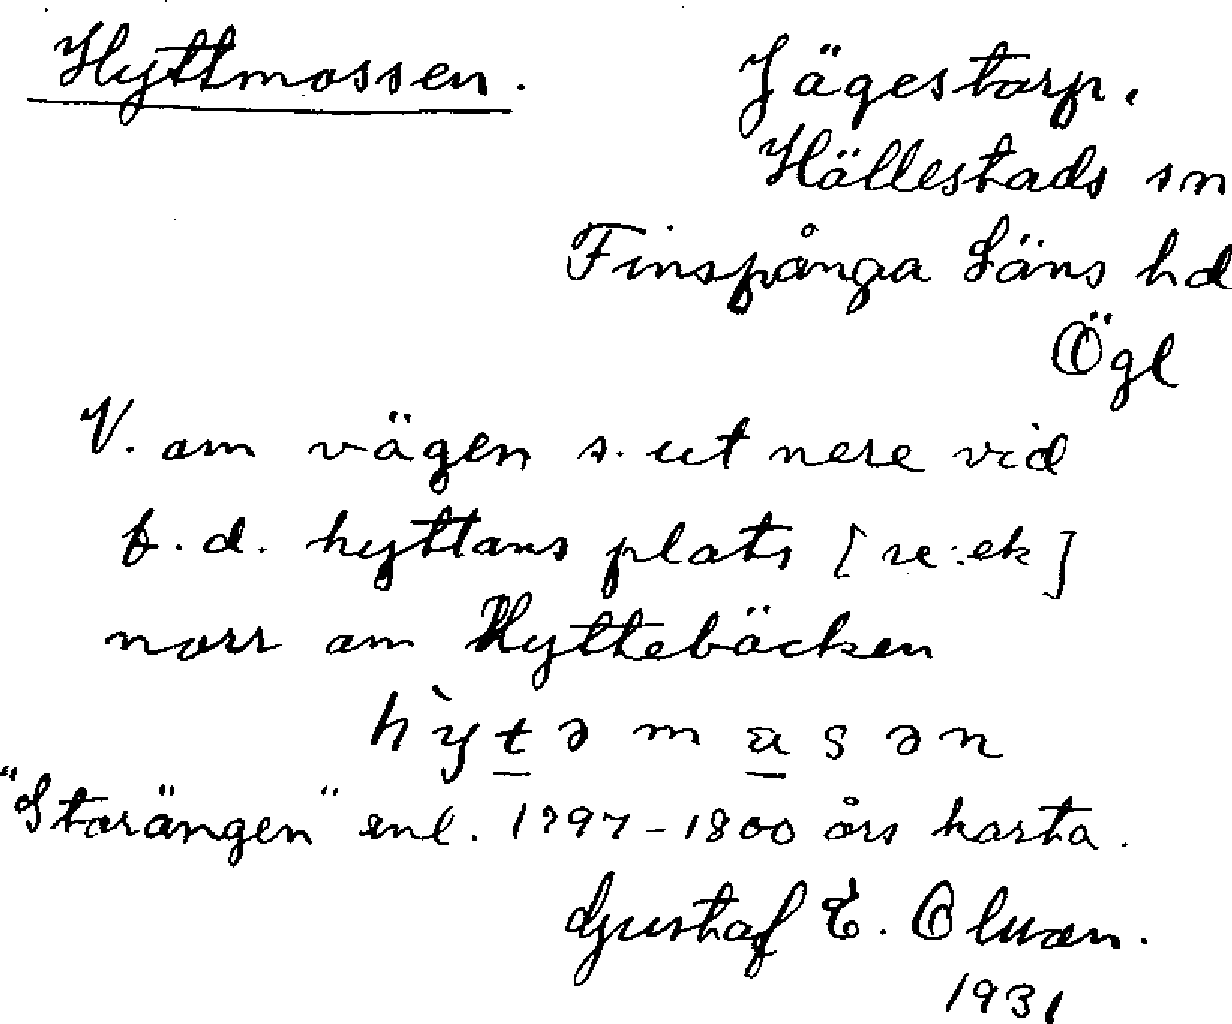 Hyttmossen.
Jägestorp.
Hällestads sn
Finspånga Läns hd
Ögl
V. om vägen s. ut nere vid
f.d. hyttans plats [se: ek]
norr om Hyttebäcken
hỳtəmɑsən
"Storängen" enl. 1797-1800 års karta.
Gustaf E. Olsson.
1931